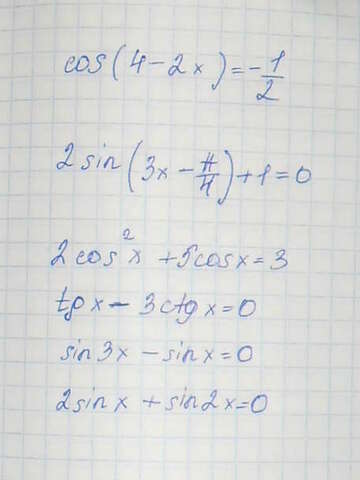 cos(4-2x)=-1/2
2sin(3x-π/4)+1=0
2cos²x+5cosx=3
tgx-3ctgx=0
sin3x-sinx=0
2sinx+sin2x=0